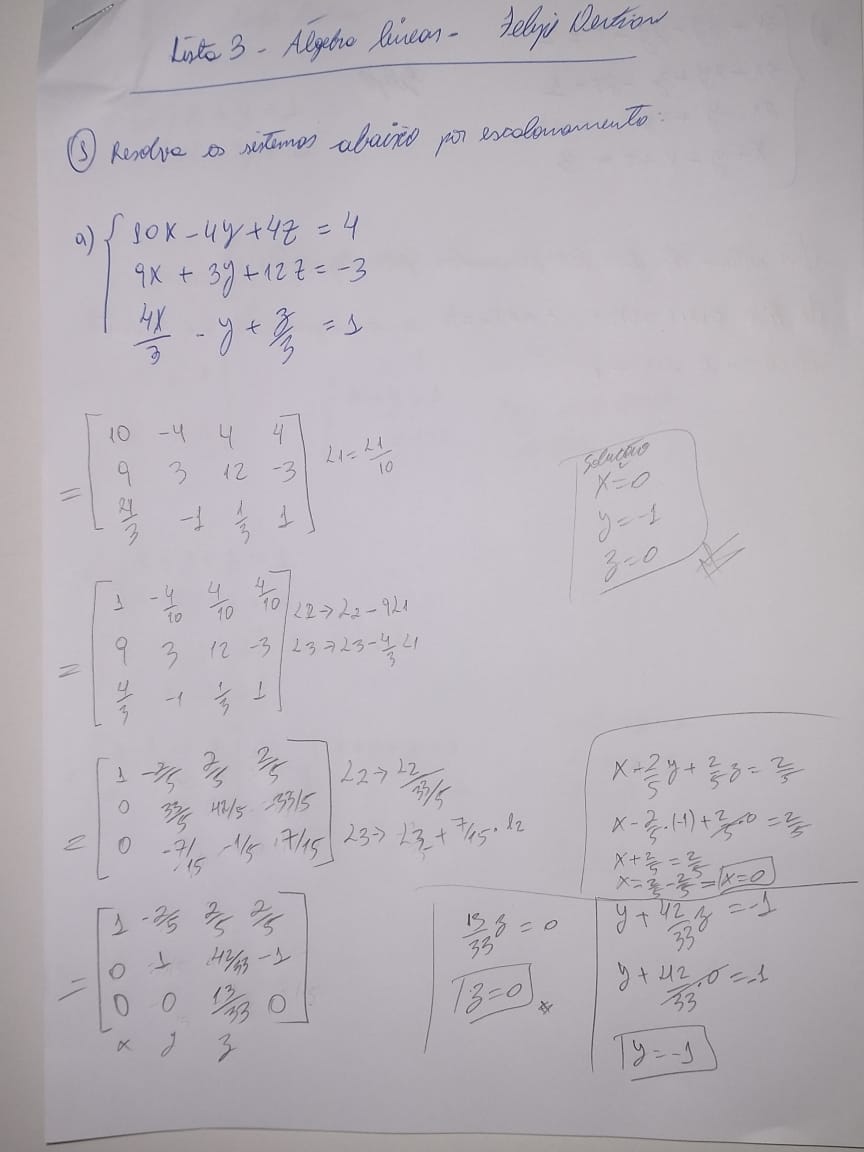 Lista 3 - Álgebra linear - Felipe
① Resolva os sistemas abaixo por escalonamento:
a) { 10x - 4y + 4z = 4
9x + 3y + 12z = -3
4x/3 - y + z/3 = 1
= [ 10 -4 4 4
9 3 12 -3
4/3 -1 1/3 1 ] L1 = L1/10
Solução
x=0
y=-1
z=0
= [ 1 -4/10 4/10 4/10
9 3 12 -3
4/3 -1 1/3 1 ]
L2 → L2 - 9L1
L3 → L3 - 4/3 L1
= [ 1 -2/5 2/5 2/5
0 33/5 42/5 -33/5
0 -7/15 -1/5 7/15 ]
L2 → L2/33/5
L3 → L3 + 7/15 · L2
x - 2/5 y + 2/5 z = 2/5
x - 2/5 . (-1) + 2/5 . 0 = 2/5
x + 2/5 = 2/5
x = 2/5 - 2/5 = x=0
= [ 1 -2/5 2/5 2/5
0 1 42/33 -1
0 0 13/33 0 ]
x y z
13/33 z = 0
z=0 *
y + 42/33 z = -1
y + 42/33 . 0 = -1
y = -1